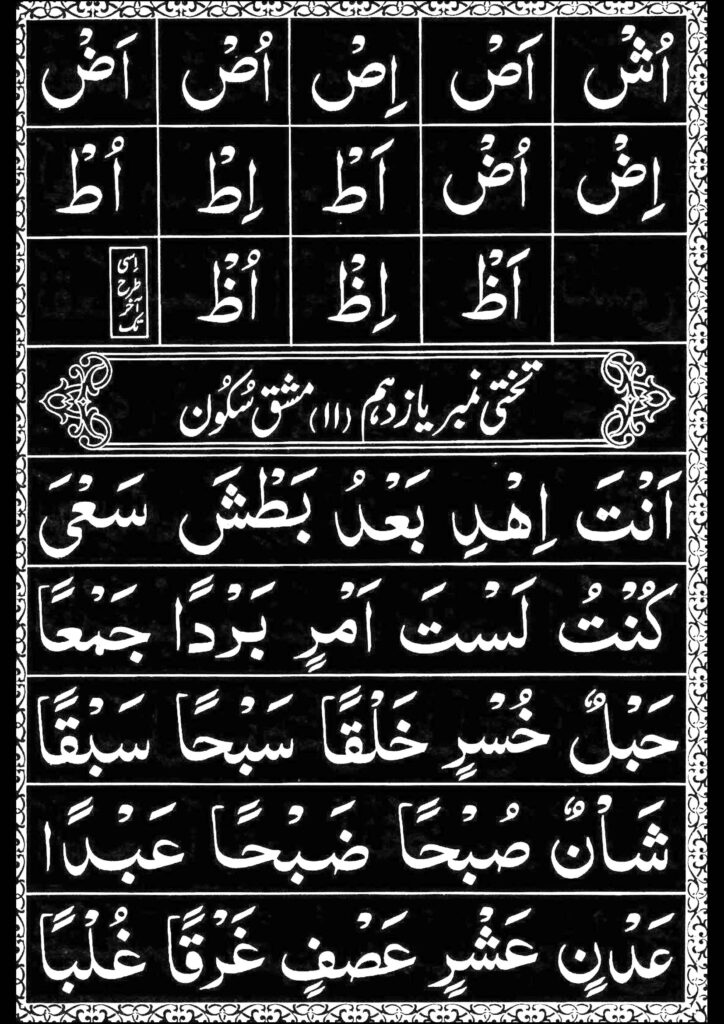 اُشْ اَصْ اِصْ اُصْ اَضْ
اِضْ اُضْ اَطْ اِطْ اُطْ
اَظْ اِظْ اُظْ اِسی طرح آخر تک
تختی نمبر یازدہم (۱۱) مشق سُکُون
اَنْتَ اِهْدِ بَعْدُ بَطْشَ سَعْیَ
کُنْتُ لَسْتَ اَمْرٍ بَرْدًا جَمْعًا
حَبْلٌ خُسْرٍ خَلْقًا سَبْحًا سَبْقًا
شَاْنٌ صُبْحًا ضَبْحًا عَبْدًا
عَدْنٍ عَشْرٍ عَصْفٍ غَرْقًا غُلْبًا